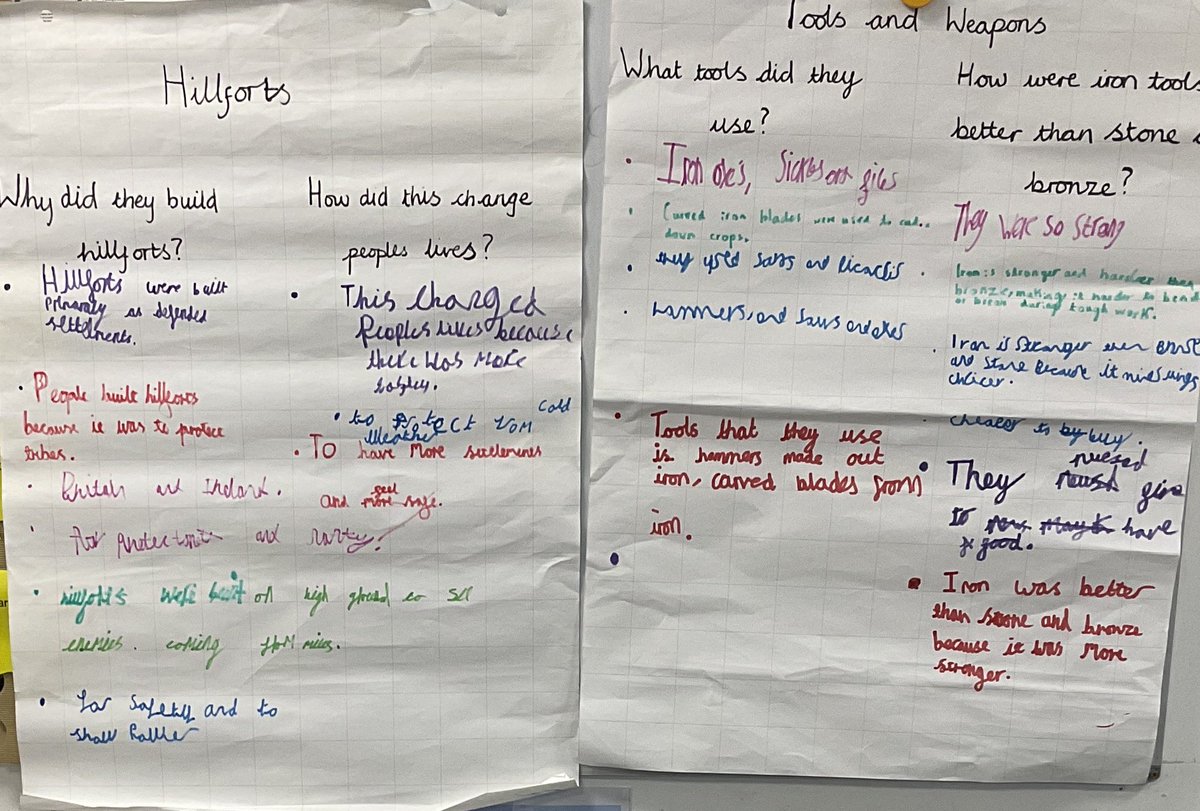 Hillforts
Why did they build
hillforts?
Hillforts were built
primarily as defended
settlements.
People built hillforts
because it was to protect
tribes.
for protection and
hillforts were built on high ground to see
enemies. coming from miles.
for safety and to
show
How did this change
peoples lives?
This changed
Peoples lives because
there was more
safety.
to protect from cold
weather
To have more settlements
and feel more safe.
Tools and Weapons
What tools did they
use?
Iron
Curved iron blades were used to cut
down crops.
they used saws and
hammers, and saws and axes
Tools that they use
is hammers made out
iron, carved blades from
iron.
How were iron tools
better than stone
bronze?
They were so strong
Iron is stronger and harder then
bronze, making it harder to bend
or break during tough work.
Iron is stronger
and stone because it
cheaper to by buy.
They
have
good.
Iron was better
than stone and bronze
because it was more
stronger.